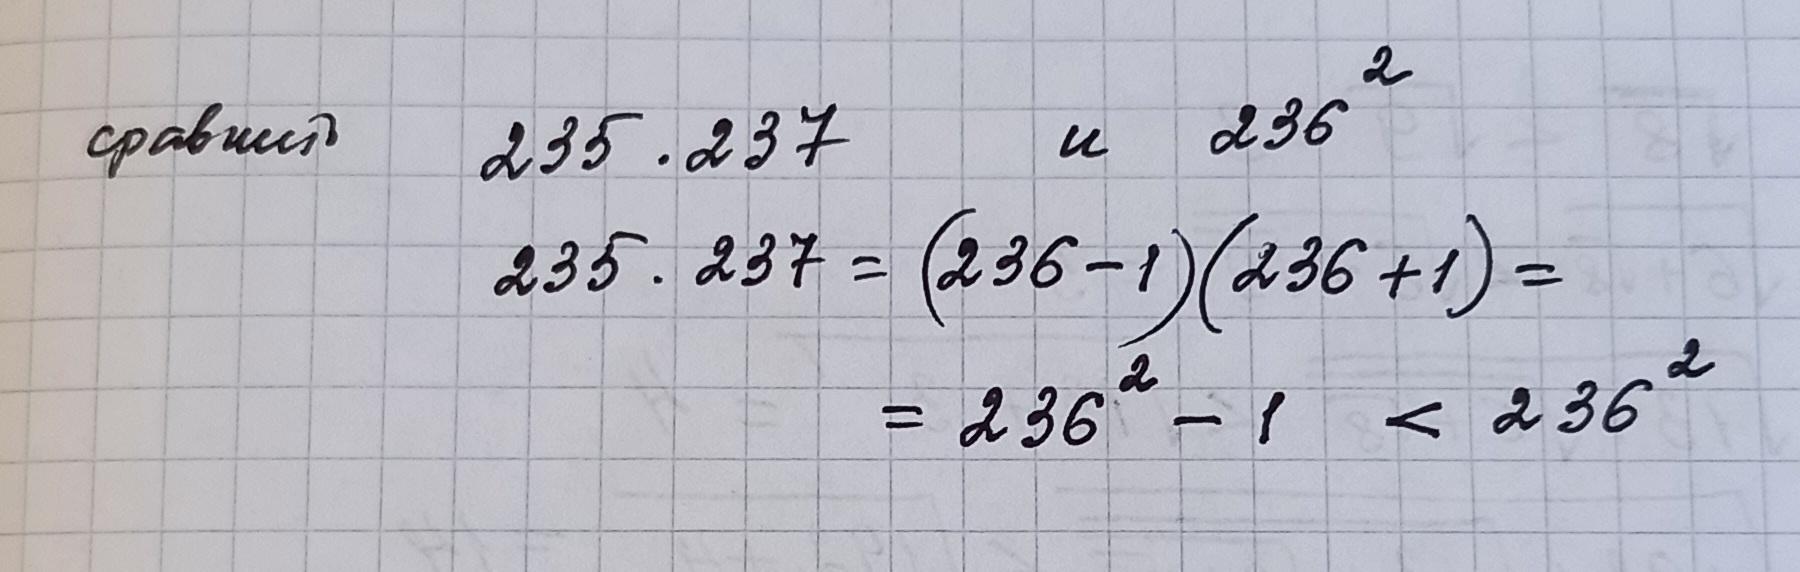 сравнить 235 · 237 и 236²
235 · 237 = (236 - 1)(236 + 1) =
= 236² - 1 < 236²